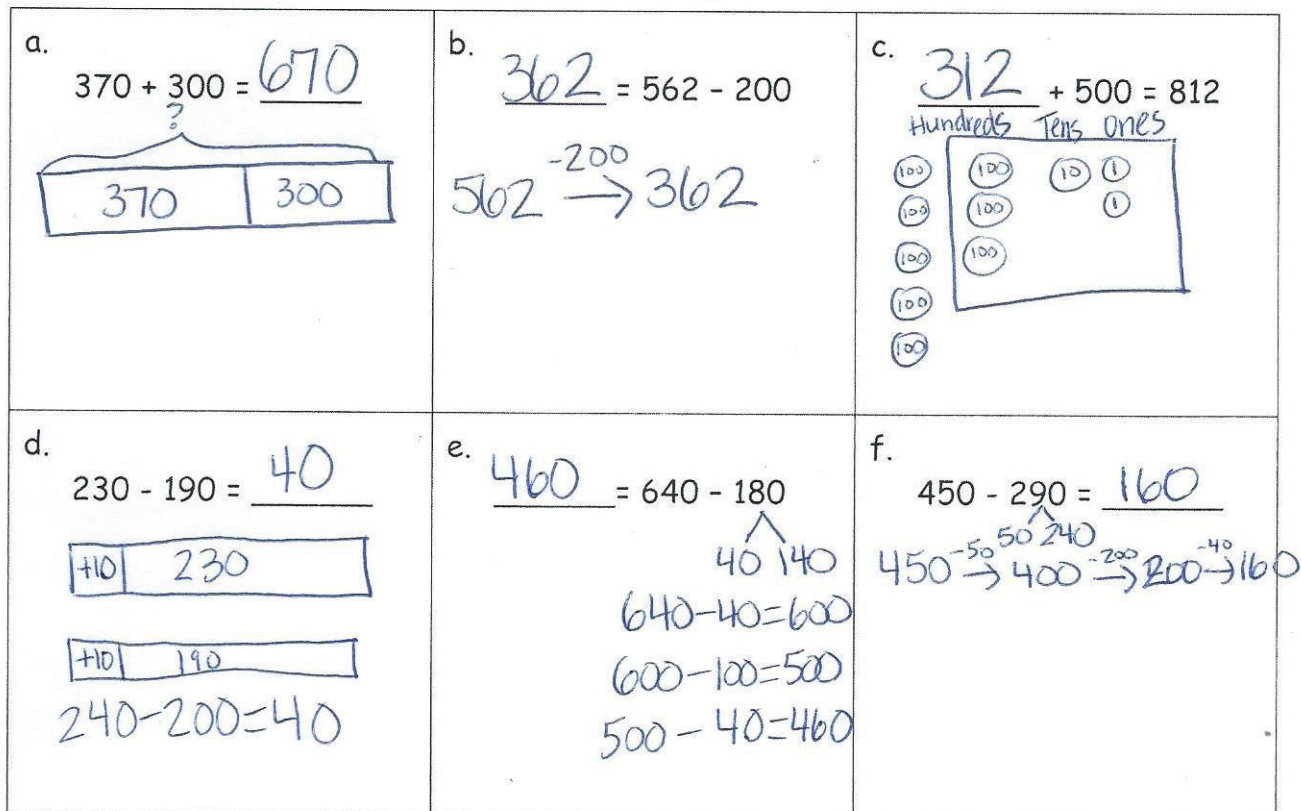 a.
370 + 300 = 670
?
370 300
b.
362 = 562 - 200
562 -200→ 362
c.
312 + 500 = 812
Hundreds Tens ones
100 100 10 1
100 100 1
100 100
100
100
d.
230 - 190 = 40
+10 230
+10 190
240-200=40
e.
460 = 640 - 180
40 140
640-40=600
600-100=500
500-40=460
f.
450 - 290 = 160
50 240
450 -50→ 400 -200→ 200 -40→ 160